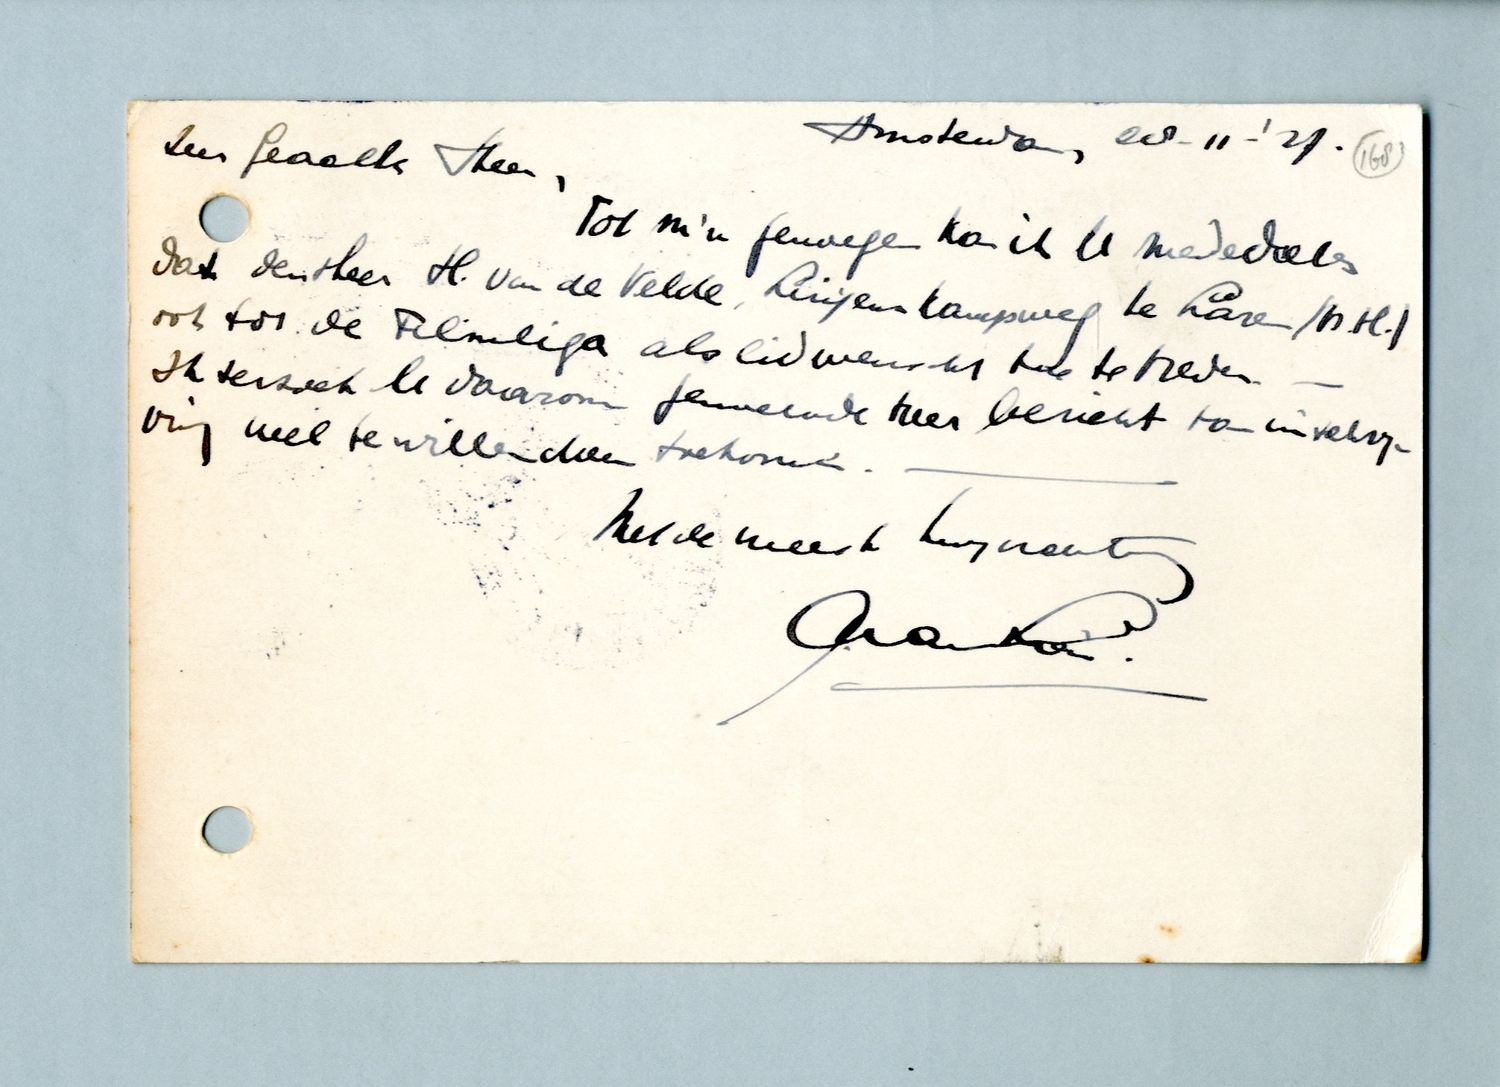 Amsterdam, 28-11-'27.
168
Zeer Geachte Heer,
Tot m'n genoegen kan ik U mededeelen
dat den Heer H. van de Velde, kampweg te Laren (N.H.)
ook tot de Filmliga als lid wenscht toe te treden. —
Ik verzoek U daarom genoemde heer bericht van inschrij-
ving wel te willen doen toekomen. —
Met de meeste hoogachting